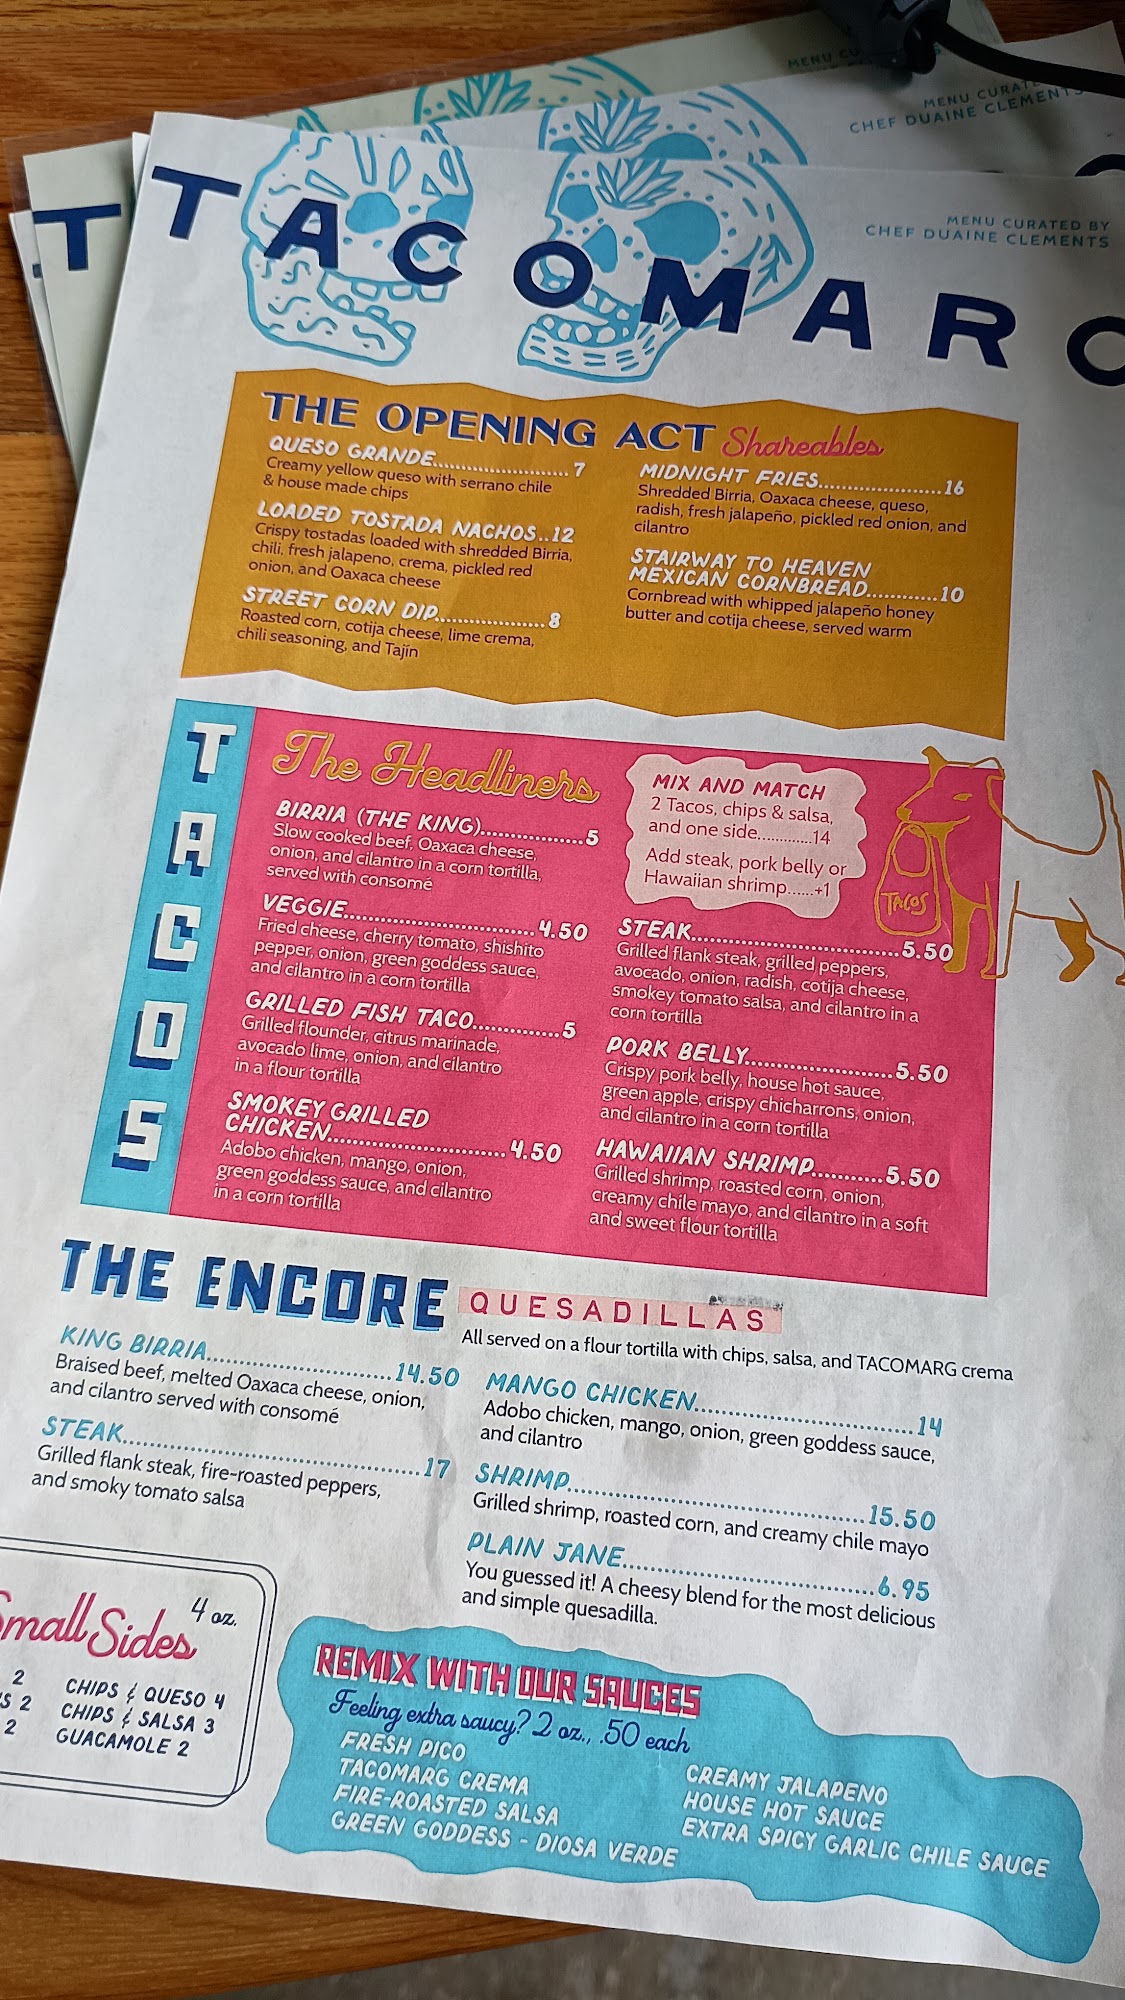 MENU CURATED BY
CHEF DUAINE CLEMENTS
MENU CURATED BY
CHEF DUAINE CLEMENTS
T
TACOMAR
THE OPENING ACT Shareables
QUESO GRANDE........................7
Creamy yellow queso with serrano chile
& house made chips
LOADED TOSTADA NACHOS..12
Crispy tostadas loaded with shredded Birria,
chili, fresh jalapeno, crema, pickled red
onion, and Oaxaca cheese
STREET CORN DIP...................8
Roasted corn, cotija cheese, lime crema,
chili seasoning, and Tajín
MIDNIGHT FRIES......................16
Shredded Birria, Oaxaca cheese, queso,
radish, fresh jalapeño, pickled red onion, and
cilantro
STAIRWAY TO HEAVEN
MEXICAN CORNBREAD............10
Cornbread with whipped jalapeño honey
butter and cotija cheese, served warm
TACOS
The Headliners
BIRRIA (THE KING)..................5
Slow cooked beef, Oaxaca cheese,
onion, and cilantro in a corn tortilla,
served with consomé
VEGGIE..................................4.50
Fried cheese, cherry tomato, shishito
pepper, onion, green goddess sauce,
and cilantro in a corn tortilla
GRILLED FISH TACO...............5
Grilled flounder, citrus marinade,
avocado lime, onion, and cilantro
in a flour tortilla
SMOKEY GRILLED
CHICKEN................................4.50
Adobo chicken, mango, onion,
green goddess sauce, and cilantro
in a corn tortilla
MIX AND MATCH
2 Tacos, chips & salsa,
and one side.............14
Add steak, pork belly or
Hawaiian shrimp......+1
TACOS
STEAK.....................................5.50
Grilled flank steak, grilled peppers,
avocado, onion, radish, cotija cheese,
smokey tomato salsa, and cilantro in a
corn tortilla
PORK BELLY..........................5.50
Crispy pork belly, house hot sauce,
green apple, crispy chicharrons, onion,
and cilantro in a corn tortilla
HAWAIIAN SHRIMP............5.50
Grilled shrimp, roasted corn, onion,
creamy chile mayo, and cilantro in a soft
and sweet flour tortilla
THE ENCORE QUESADILLAS
All served on a flour tortilla with chips, salsa, and TACOMARG crema
KING BIRRIA................................14.50
Braised beef, melted Oaxaca cheese, onion,
and cilantro served with consomé
STEAK....................................................17
Grilled flank steak, fire-roasted peppers,
and smoky tomato salsa
MANGO CHICKEN.....................................14
Adobo chicken, mango, onion, green goddess sauce,
and cilantro
SHRIMP...................................................15.50
Grilled shrimp, roasted corn, and creamy chile mayo
PLAIN JANE...........................................6.95
You guessed it! A cheesy blend for the most delicious
and simple quesadilla.
Small Sides 4 oz.
2 CHIPS & QUESO 4
S 2 CHIPS & SALSA 3
2 GUACAMOLE 2
REMIX WITH OUR SAUCES
Feeling extra saucy? 2 oz., .50 each
FRESH PICO
TACOMARG CREMA
FIRE-ROASTED SALSA
GREEN GODDESS - DIOSA VERDE
CREAMY JALAPENO
HOUSE HOT SAUCE
EXTRA SPICY GARLIC CHILE SAUCE